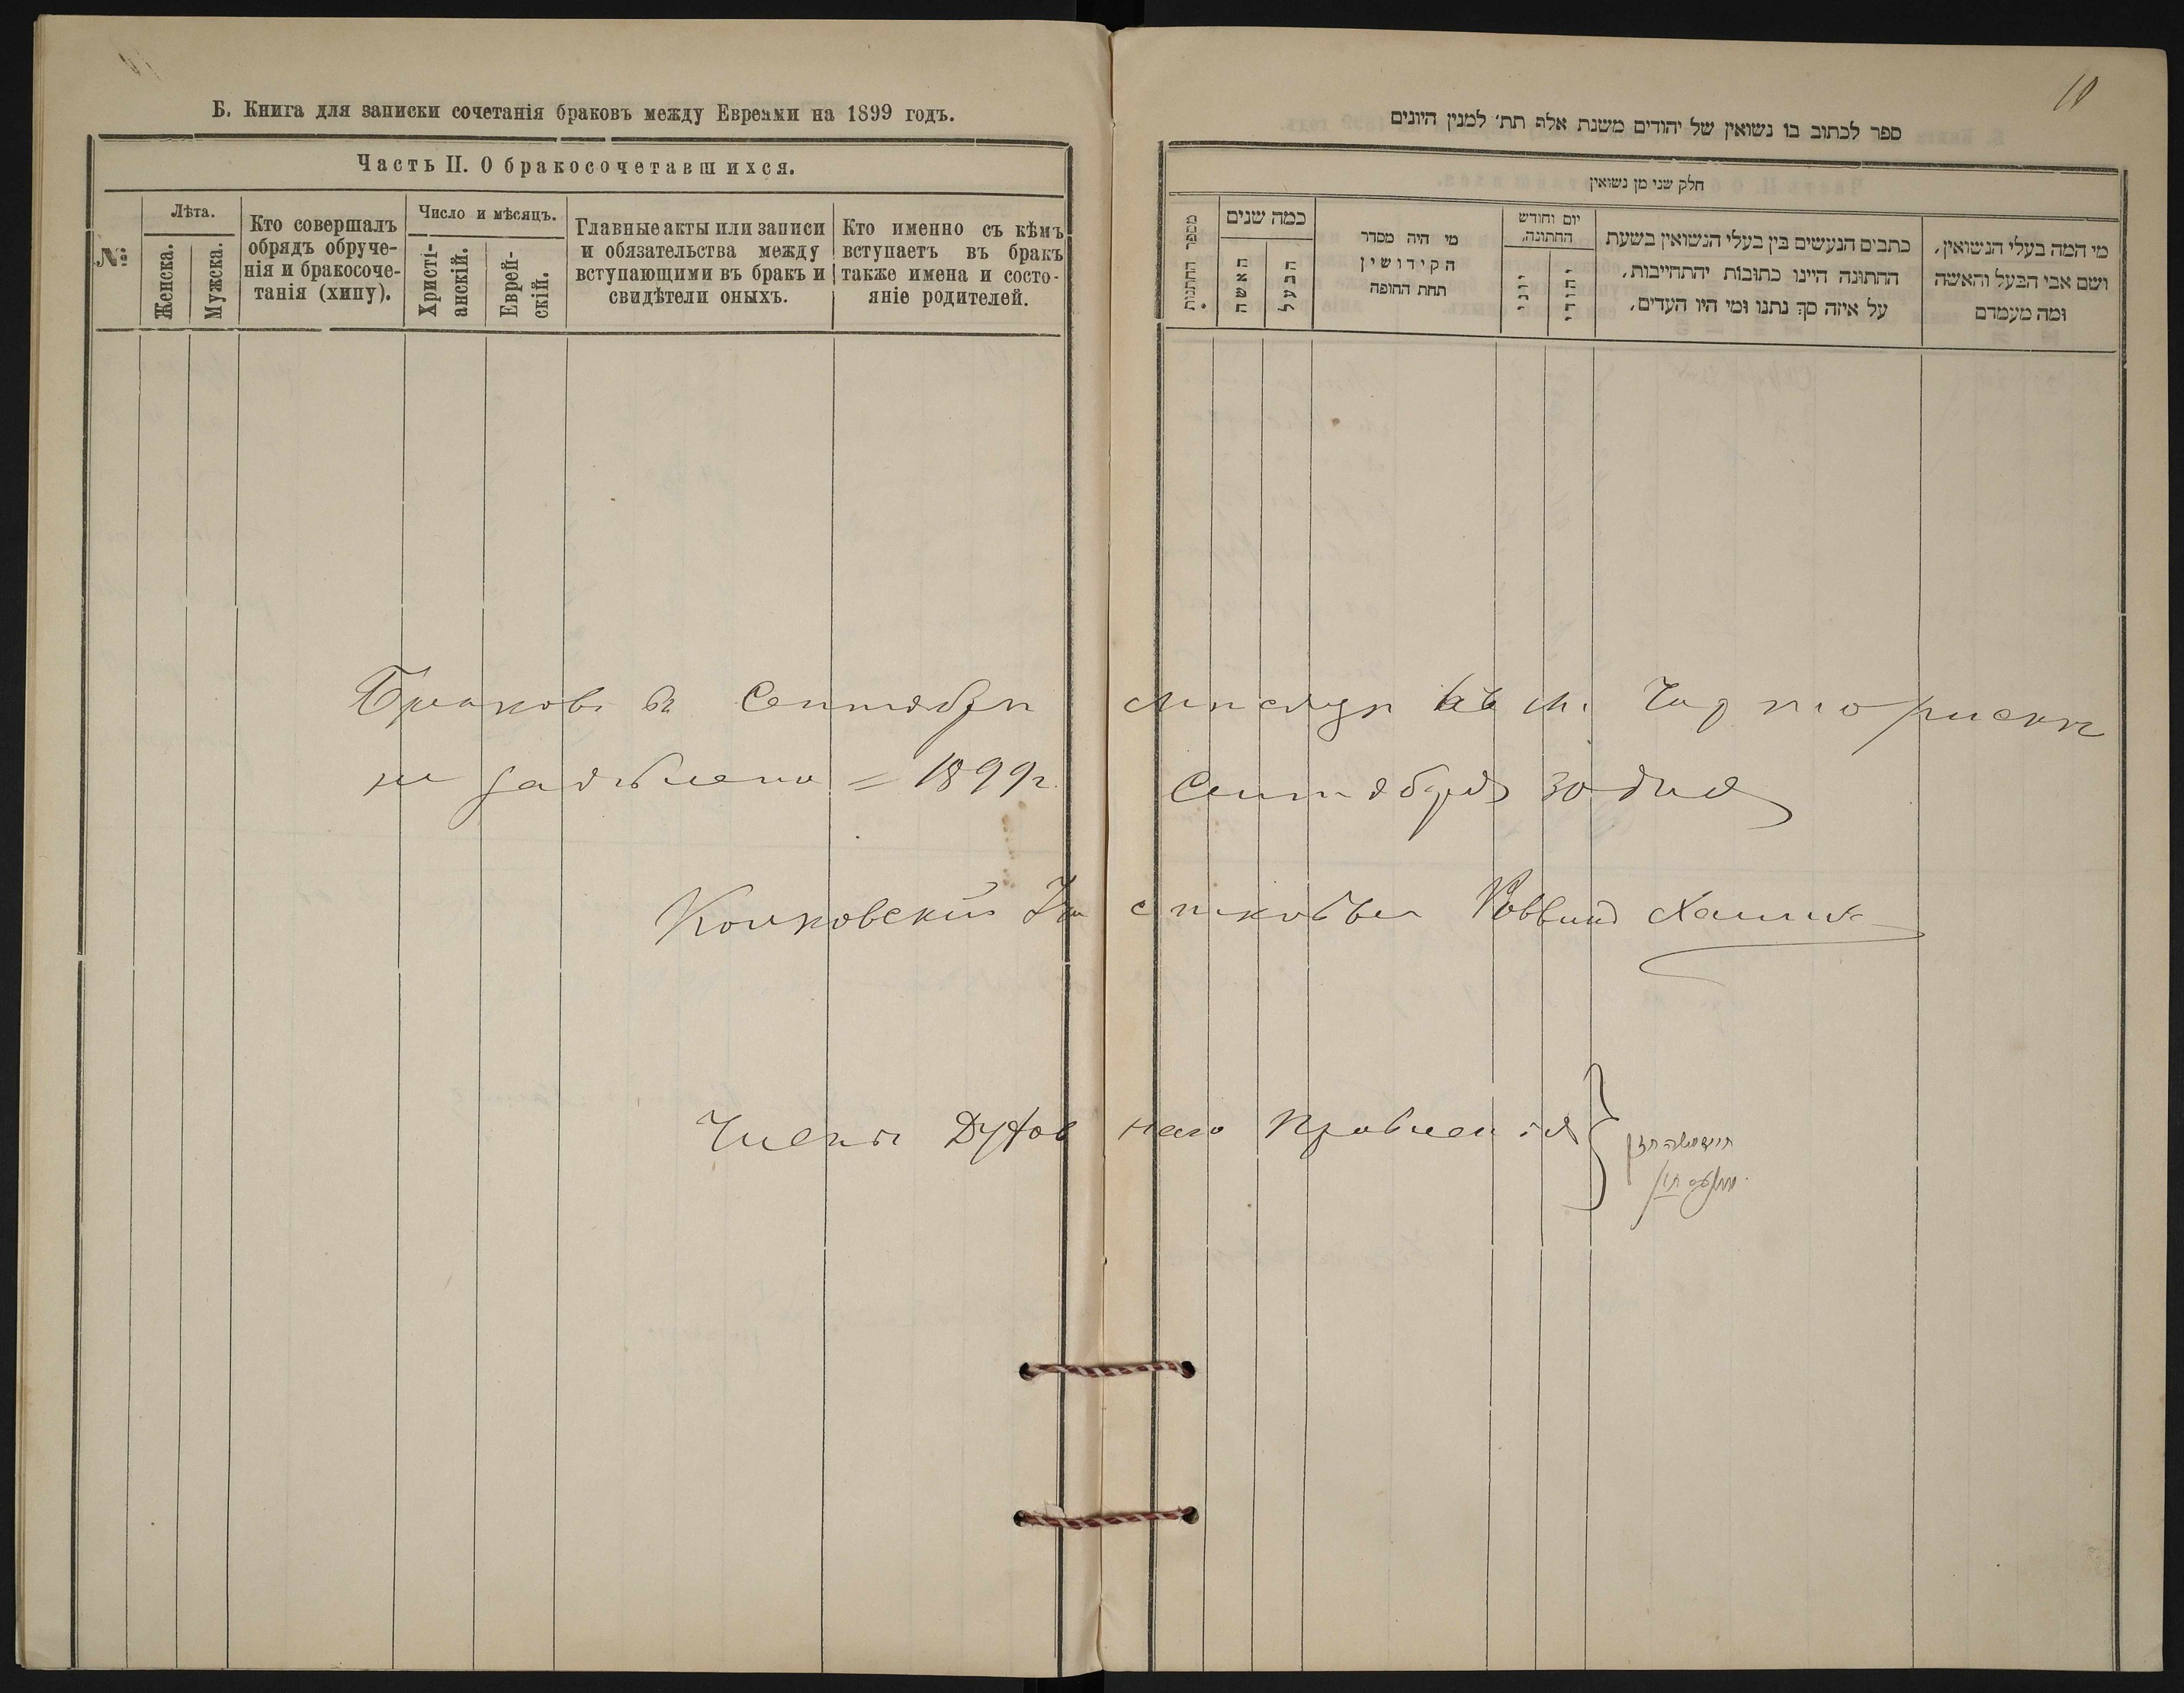 10
Б. Книга для записки сочетанія браковъ между Евреями на 1899 годъ.
Часть II. О бракосочетавшихся.
№
Лѣта.
Женска.
Мужска.
Кто совершалъ
обрядъ обруче-
нія и бракосоче-
танія (хипу).
Число и мѣсяцъ.
Христі-
анскій.
Еврей-
скій.
Главные акты или записи
и обязательства между
вступающими въ бракъ и
свидѣтели оныхъ.
Кто именно съ кѣмъ
вступаетъ въ бракъ
также имена и состо-
яніе родителей.
ספר לכתוב בו נשואין של יהודים משנת אלף תת׳ למנין היונים
חלק שני מן נשואין
מספר החתנות
כמה שנים
האשה
הבעל
מי היה מסדר
הקידושין
תחת החופה
יום וחודש
החתונה,
יוני
יהודי
כתבים הנעשים בין בעלי הנשואין בשעת
החתונה היינו כתובות יהתחייבות,
על איזה סך נתנו ומי היו העדים,
מי המה בעלי הנשואין,
ושם אבי הבעל והאשה
ומה מעמדם
Браковъ въ Сентябрѣ мѣсяцѣ въ м. Чарторискѣ
не заявлено = 1899 г. Сентября 30 дня
Колковский Раввинъ
Члены Духовнаго Правленія